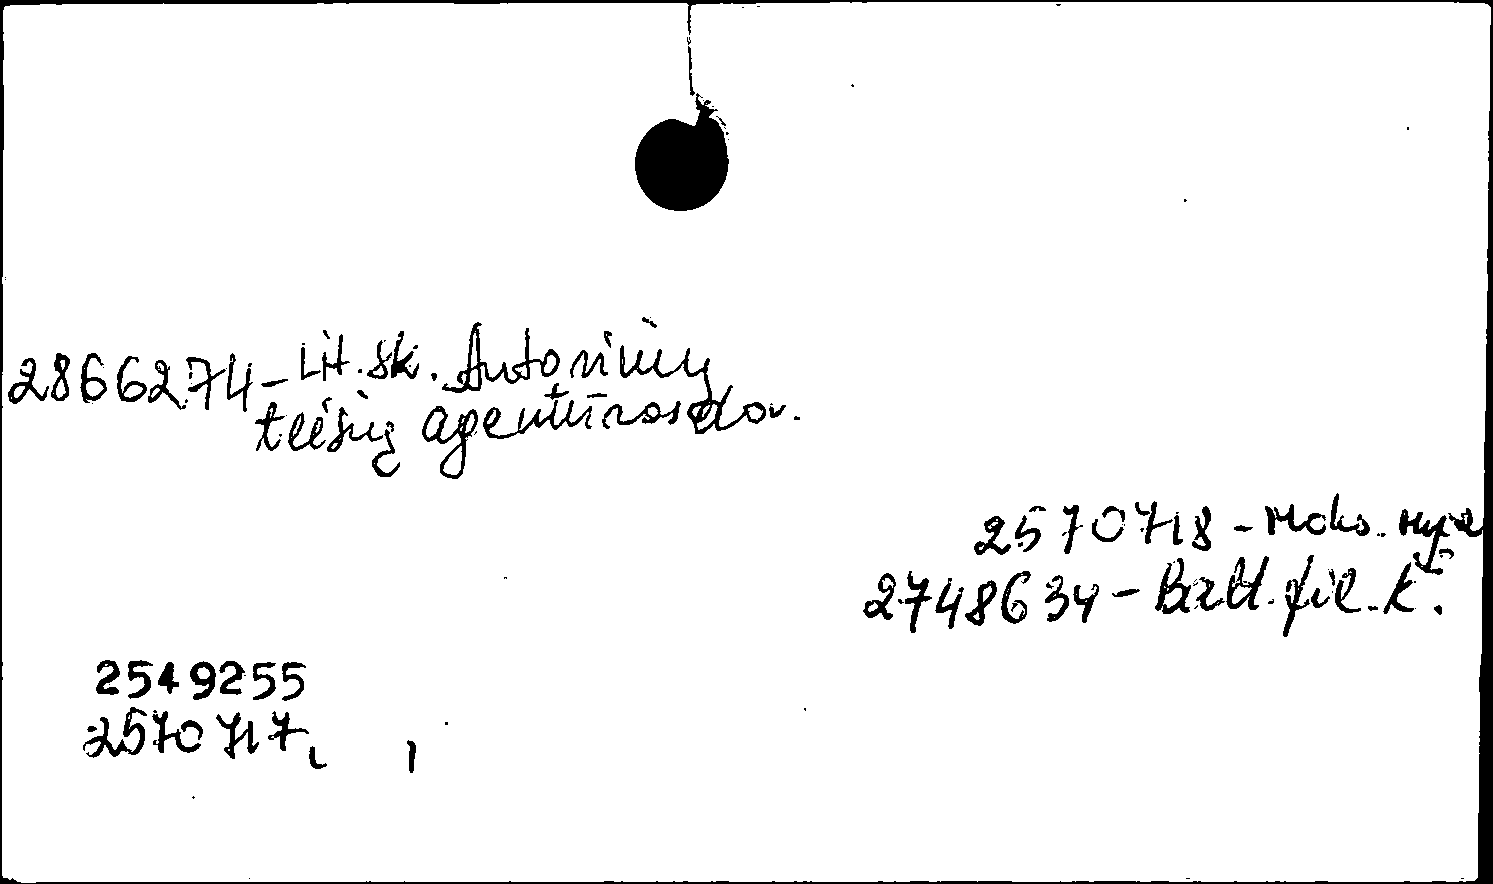 2866274-Lit.sk. Autorinių
teisių agentūros dov.
2570718-Moks.
2748634-Balt.fil.k.
2549255
2570717,